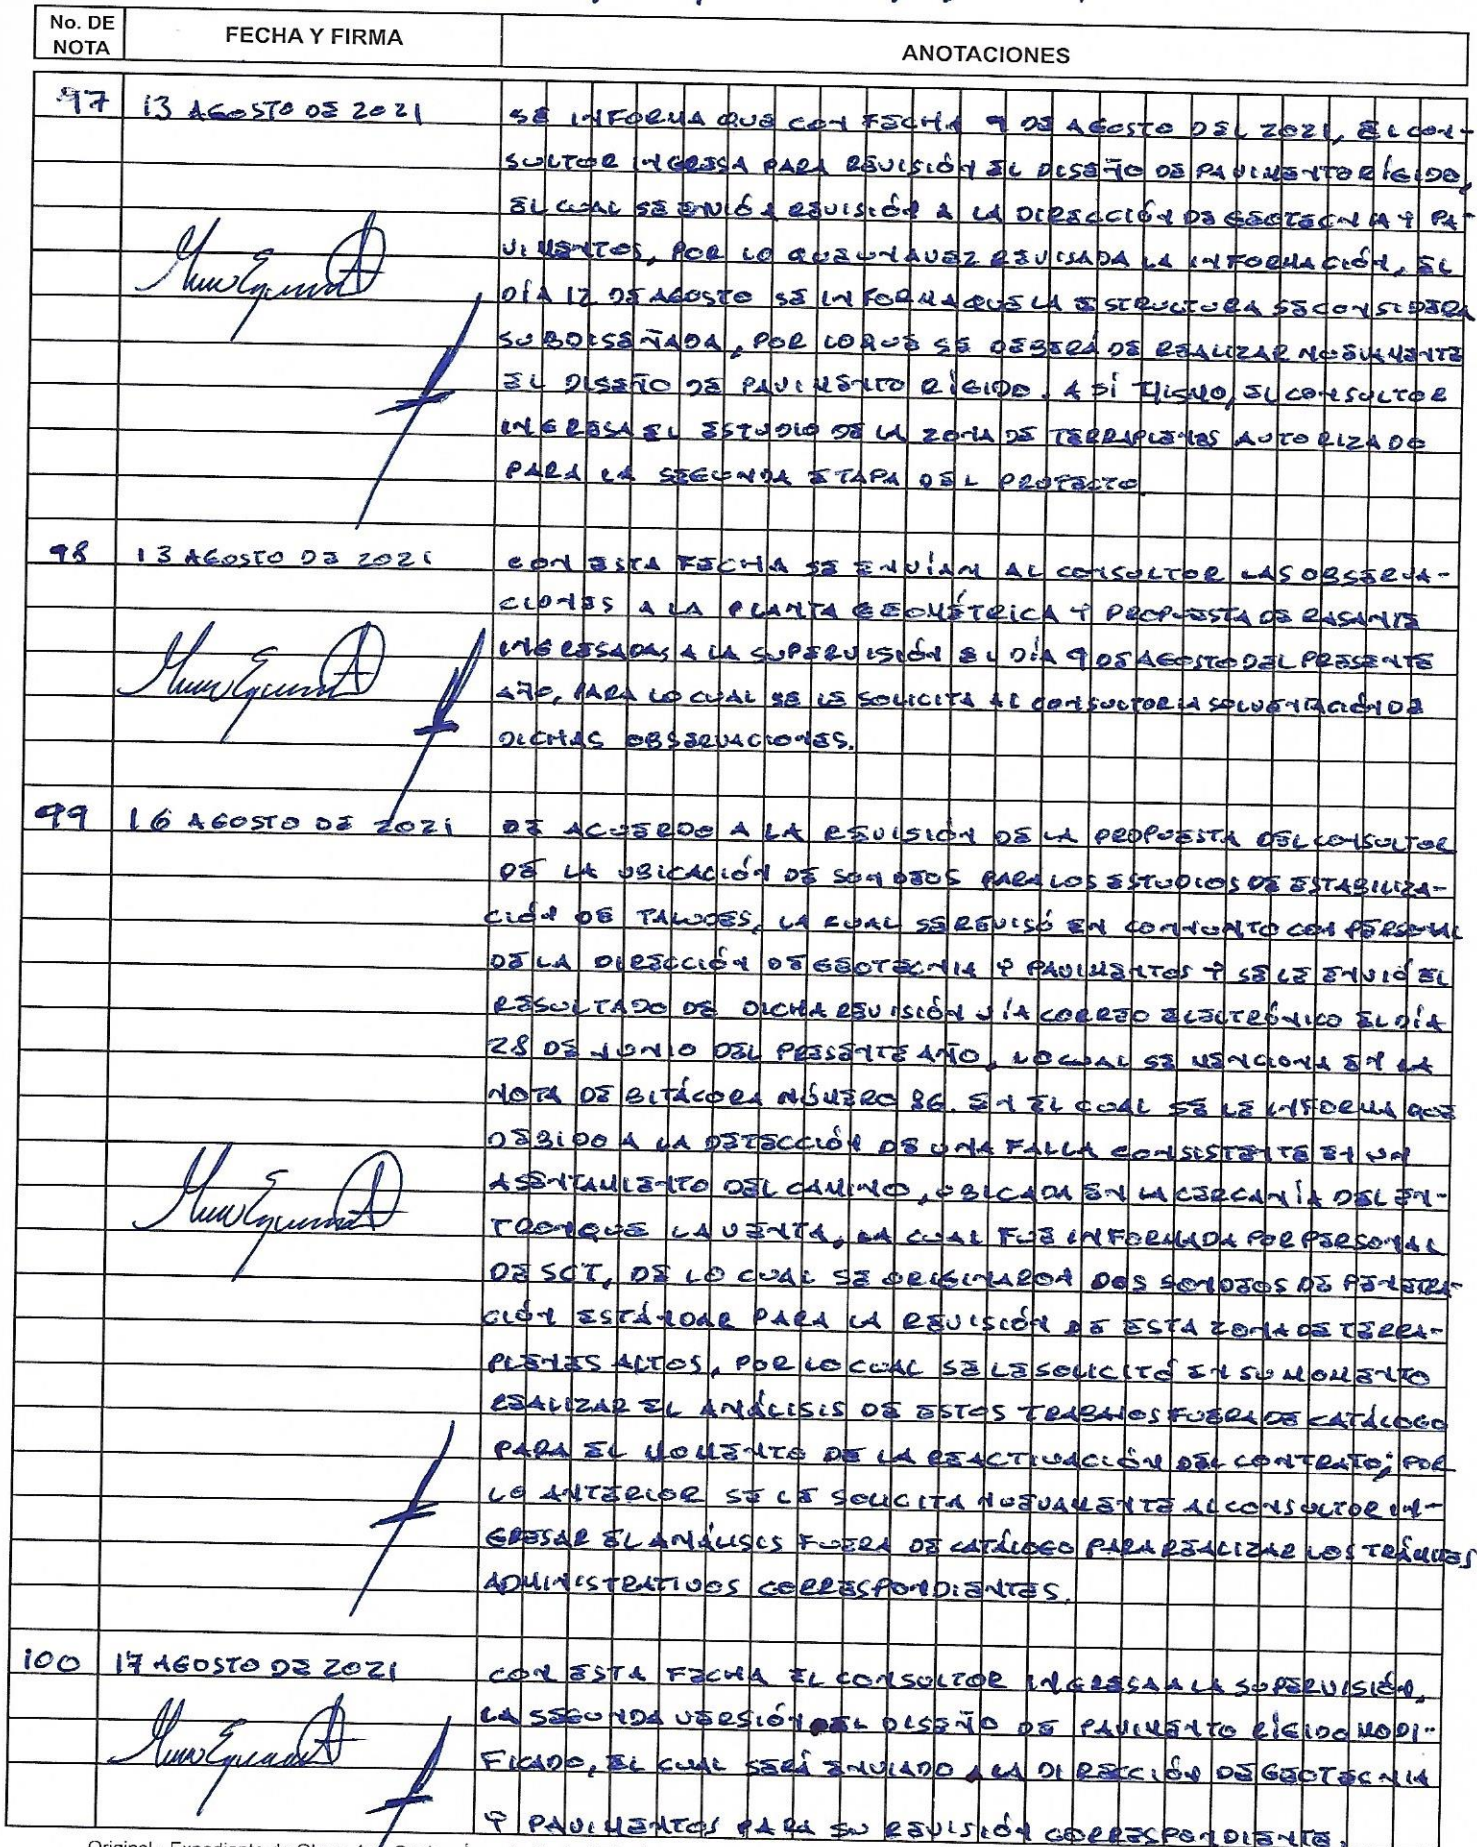 No. DE NOTA
FECHA Y FIRMA
ANOTACIONES
97
13 AGOSTO DE 2021
SE INFORMA QUE CON FECHA 9 DE AGOSTO DEL 2021, EL CON-
SULTOR INGRESA PARA REVISIÓN EL DISEÑO DE PAVIMENTO RÍGIDO,
EL CUAL SE ENVIÓ A REVISIÓN A LA DIRECCIÓN DE GEOTECNIA Y PA-
VIMENTOS, POR LO QUE UNA VEZ REVISADA LA INFORMACIÓN, EL
DÍA 12 DE AGOSTO SE INFORMA QUE LA ESTRUCTURA SE CONSIDERA
SUBDISEÑADA, POR LO QUE SE DEBERÁ DE REALIZAR NUEVAMENTE
EL DISEÑO DE PAVIMENTO RÍGIDO. ASÍ MISMO, EL CONSULTOR
INGRESA EL ESTUDIO DE LA ZONA DE TERRAPLENES AUTORIZADO
PARA LA SEGUNDA ETAPA DEL PROYECTO
98
13 AGOSTO DE 2021
CON ESTA FECHA SE ENVÍAN AL CONSULTOR LAS OBSERVA-
CIONES A LA PLANTA GEOMÉTRICA Y PROPUESTA DE RASANTE
INGRESADAS A LA SUPERVISIÓN EL DÍA 9 DE AGOSTO DEL PRESENTE
AÑO, PARA LO CUAL SE LE SOLICITA AL CONSULTOR LA SOLVENTACIÓN DE
DICHAS OBSERVACIONES.
99
16 AGOSTO DE 2021
DE ACUERDO A LA REVISIÓN DE LA PROPUESTA DEL CONSULTOR
DE LA UBICACIÓN DE SONDEOS PARA LOS ESTUDIOS DE ESTABILIZA-
CIÓN DE TALUDES, LA CUAL SE REVISÓ EN CONJUNTO CON PERSONAL
DE LA DIRECCIÓN DE GEOTECNIA Y PAVIMENTOS Y SE LE ENVIÓ EL
RESULTADO DE DICHA REVISIÓN VÍA CORREO ELECTRÓNICO EL DÍA
28 DE JUNIO DEL PRESENTE AÑO, LO CUAL SE MENCIONA EN LA
NOTA DE BITÁCORA NÚMERO 86. EN EL CUAL SE LE INFORMA QUE
DEBIDO A LA DETECCIÓN DE UNA FALLA CONSISTENTE EN UN
ASENTAMIENTO DEL CAMINO, UBICADA EN LA CERCANÍA DEL EN-
TRONQUE LA VENTA, LA CUAL FUE INFORMADA POR PERSONAL
DE SCT, DE LO CUAL SE ORIGINARON DOS SONDEOS DE PENETRA-
CIÓN ESTÁNDAR PARA LA REVISIÓN DE ESTA ZONA DE TERRA-
PLENES ALTOS, POR LO CUAL SE LE SOLICITÓ EN SU MOMENTO
REALIZAR EL ANÁLISIS DE ESTOS TRABAJOS FUERA DE CATÁLOGO
PARA EL MOMENTO DE LA REACTIVACIÓN DEL CONTRATO; POR
LO ANTERIOR SE LE SOLICITA NUEVAMENTE AL CONSULTOR IN-
GRESAR EL ANÁLISIS FUERA DE CATÁLOGO PARA REALIZAR LOS TRÁMITES
ADMINISTRATIVOS CORRESPONDIENTES.
100
17 AGOSTO DE 2021
CON ESTA FECHA EL CONSULTOR INGRESA A LA SUPERVISIÓN,
LA SEGUNDA VERSIÓN DEL DISEÑO DE PAVIMENTO RÍGIDO MODI-
FICADO, EL CUAL SERÁ ENVIADO A LA DIRECCIÓN DE GEOTECNIA
Y PAVIMENTOS PARA SU REVISIÓN CORRESPONDIENTE.